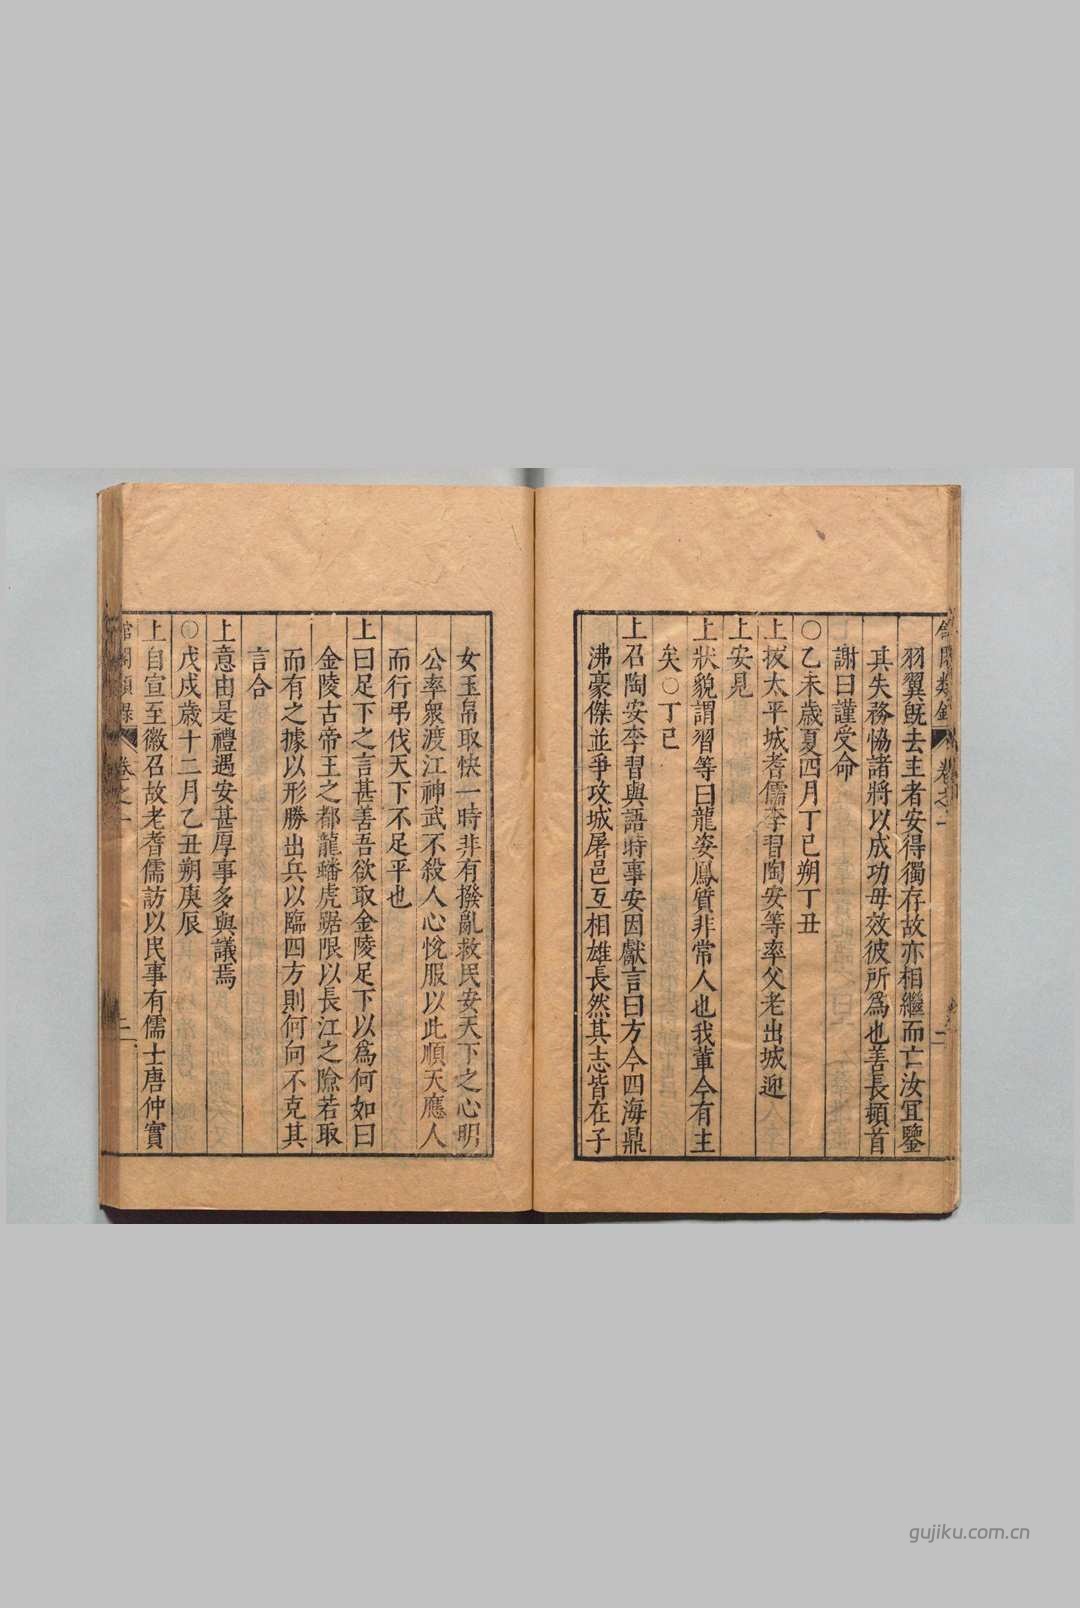 羽翼旣去主者安得獨存故亦相繼而亡汝冝鑒
其失務恊諸將以成功毋效彼所爲也善長頓首
謝曰謹受命
〇乙未歲夏四月丁巳朔丁丑
上拔太平城耆儒李習陶安等率父老出城迎
上安見
上狀貌謂習等曰龍姿鳳質非常人也我軰今有主
矣〇丁巳
上召陶安李習與語時事安因獻言曰方今四海鼎
沸豪傑並爭攻城屠邑互相雄長然其志皆在子
女玉帛取快一時非有撥亂救民安天下之心明
公率衆渡江神武不殺人心悅服以此順天應人
而行弔伐天下不足平也
上曰足下之言甚善吾欲取金陵足下以爲何如曰
金陵古帝王之都龍蟠虎踞限以長江之險若取
而有之據以形勝出兵以臨四方則何向不克其
言合
上意由是禮遇安甚厚事多與議焉
〇戊戌歲十二月乙丑朔庚辰
上自宣至徽召故老耆儒訪以民事有儒士唐仲實
館閣類錄 卷之一 二
gujiku.com.cn